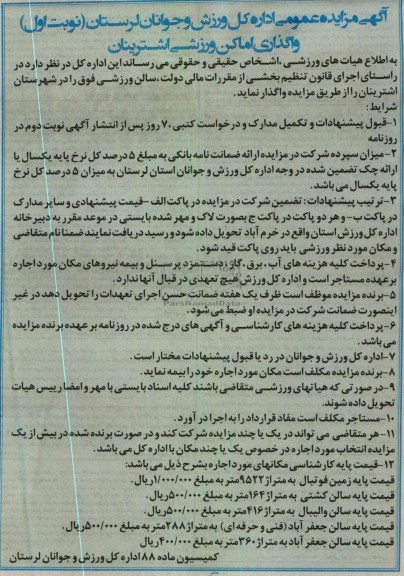 آگهی مزایده عمومی اداره کل ورزش و جوانان لرستان (نوبت اول)
واگذاری اماکن ورزشی اشترینان
به اطلاع هیات های ورزشی ،اشخاص حقیقی و حقوقی می رساند این اداره کل در نظر دارد در
راستای اجرای قانون تنظیم بخشی از مقررات مالی دولت ،سالن ورزشی فوق را در شهرستان
اشترینان را از طریق مزایده واگذار نماید.
شرایط:
۱-قبول پیشنهادات و تکمیل مدارک و درخواست کتبی ،۷ روز پس از انتشار آگهی نوبت دوم در
روزنامه
۲-میزان سپرده شرکت در مزایده ارائه ضمانت نامه بانکی به مبلغ ۵ درصد کل نرخ پایه یکسال یا
ارائه چک تضمین شده در وجه اداره کل ورزش و جوانان استان لرستان به میزان ۵ درصد کل نرخ
پایه یکسال می باشد.
۳-ترتیب پیشنهادات: تضمین شرکت در مزایده در پاکت الف -قیمت پیشنهادی و سایر مدارک
در پاکت ب- و هر دو پاکت در پاکت ج بصورت لاک و مهر شده بایستی در موعد مقرر به دبیرخانه
اداره کل ورزش استان واقع در خرم آباد تحویل داده شود و رسید دریافت نمایند ضمنا نام متقاضی
و مکان مورد نظر ورزشی باید روی پاکت قید شود.
۴-پرداخت کلیه هزینه های آب ، برق، گاز ،دستمزد پرسنل و بیمه نیروهای مکان مورد اجاره
برعهده مستاجر است و اداره کل ورزش هیچ تعهدی در قبال آنها ندارد.
۵-برنده مزایده موظف است ظرف یک هفته ضمانت حسن اجرای تعهدات را تحویل دهد در غیر
اینصورت ضمانت شرکت در مزایده او ضبط می شود.
۶-پرداخت کلیه هزینه های کارشناسی و آگهی های درج شده در روزنامه بر عهده برنده مزایده
می باشد.
۷-اداره کل ورزش و جوانان در رد یا قبول پیشنهادات مختار است.
۸-برنده مزایده مکلف است مکان مورد اجاره خود را بیمه نماید.
۹-در صورتی که هیاتهای ورزشی متقاضی باشند کلیه اسناد بایستی با مهر و امضا رییس هیات
تحویل داده شوند.
۱۰-مستاجر مکلف است مفاد قرارداد را به اجرا در آورد.
۱۱-هر متقاضی می تواند در یک یا چند مزایده شرکت کند و در صورت برنده شده در بیش از یک
مزایده انتخاب مورد اجاره در خصوص یک یا چند مکان با اداره کل می باشد.
۱۲-قیمت پایه کارشناسی مکانهای مورد اجاره بشرح ذیل می باشد:
قیمت پایه زمین فوتبال به متراژ ۹۵۲۲ متر به مبلغ ۱/۰۰۰/۰۰۰ ریال.
قیمت پایه سالن کشتی به متراژ ۱۶۴ متر به مبلغ ۵۰۰/۰۰۰ ریال.
قیمت پایه سالن والیبال به متراژ ۴۱۶ متر به مبلغ ۵۰۰/۰۰۰ ریال.
قیمت پایه سالن جعفر آباد (فنی و حرفه ای) به متراژ ۲۸۸ متر به مبلغ ۵۰۰/۰۰۰ ریال.
قیمت پایه سالن جعفر آباد به متراژ ۳۶۰ متر به مبلغ ۴۰۰/۰۰۰ ریال
کمیسیون ماده ۸۸ اداره کل ورزش و جوانان لرستان
ParsNamadData